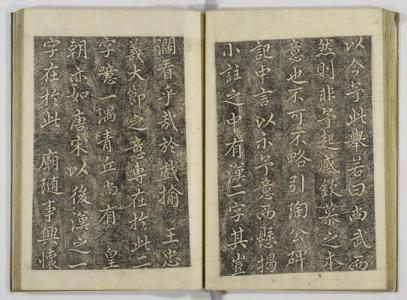 以今予此舉若曰尚武而
然則非予起感欽慕之本
意也不可不略引陶公碑
記中言以示予意而懸揭
小註之中有漢二字其豈
濶看乎哉於戱揄 王忠
義大節之意專在於此二
字噫一隅青丘尚有 皇
朝亦如唐宋以後漢之一
字在於此 廟隨事興懷